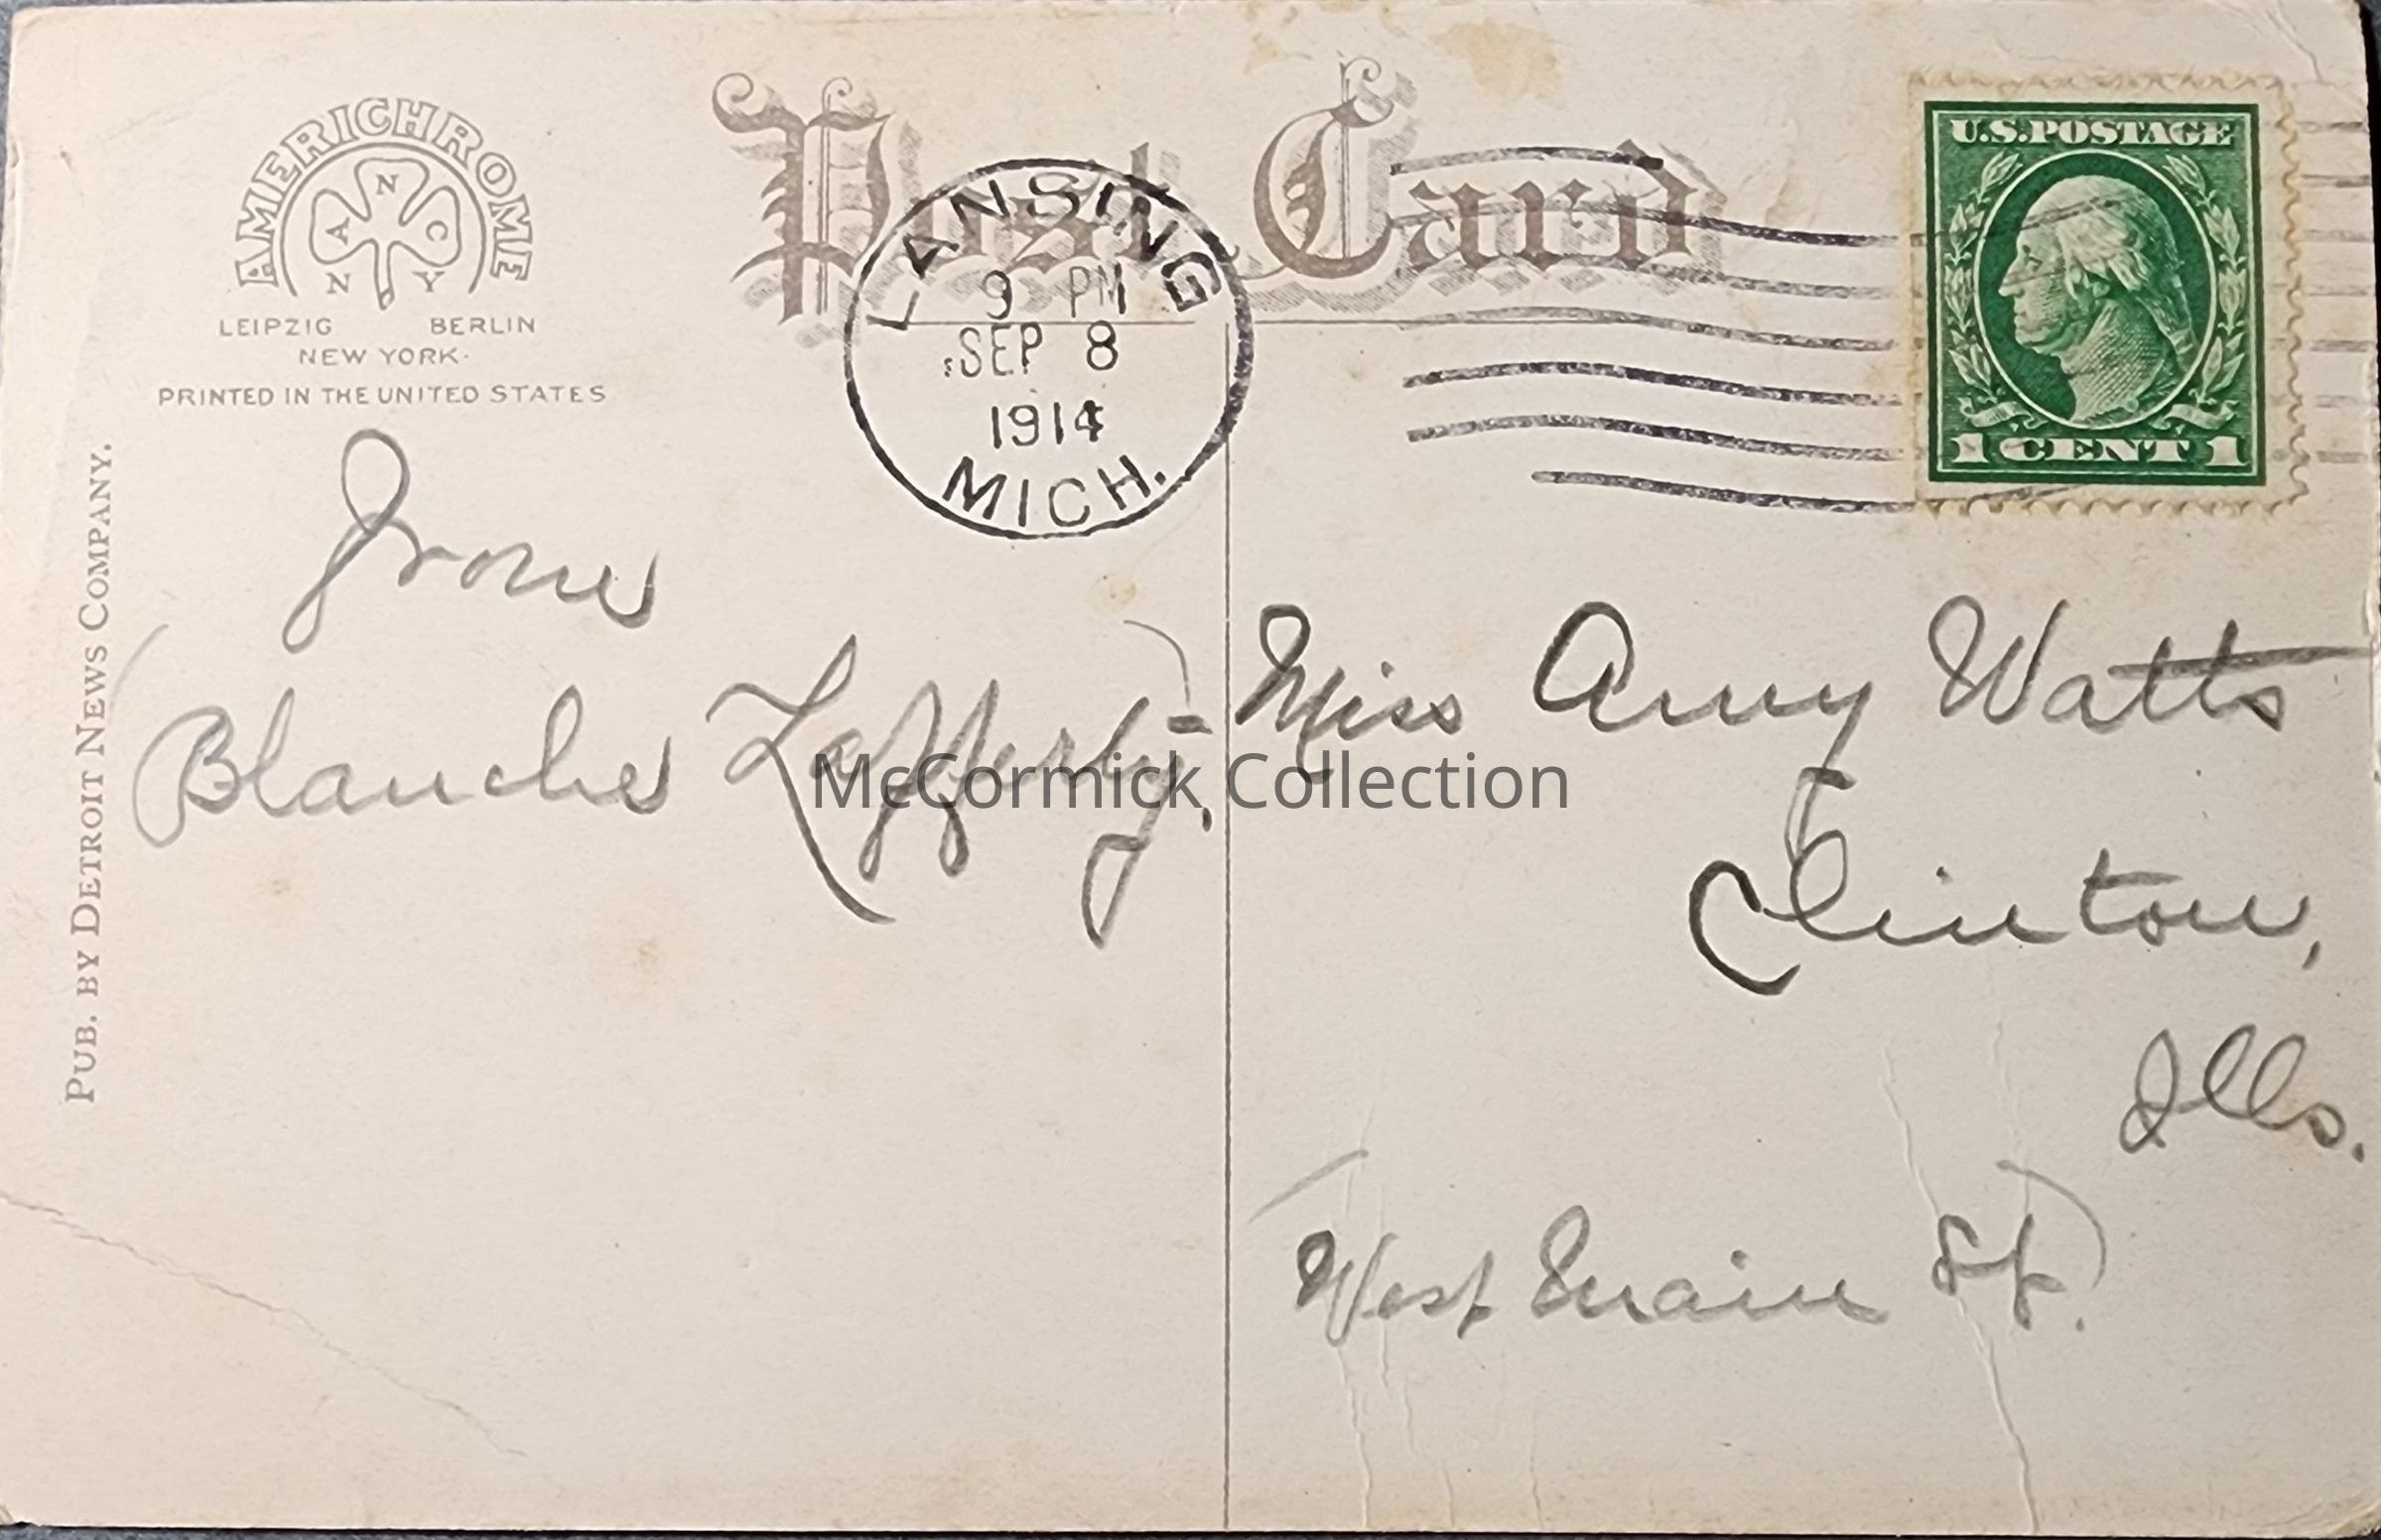 AMERICHROME
N
A C
N Y
LEIPZIG BERLIN
NEW YORK.
PRINTED IN THE UNITED STATES
Post Card
LANSING
9 PM
SEP 8
1914
MICH.
U.S.POSTAGE
1 CENT 1
PUB. BY DETROIT NEWS COMPANY.
From
Blanche Lafferty.
Miss Amy Watts
Clinton,
Ills.
(West Main St.)
McCormick Collection